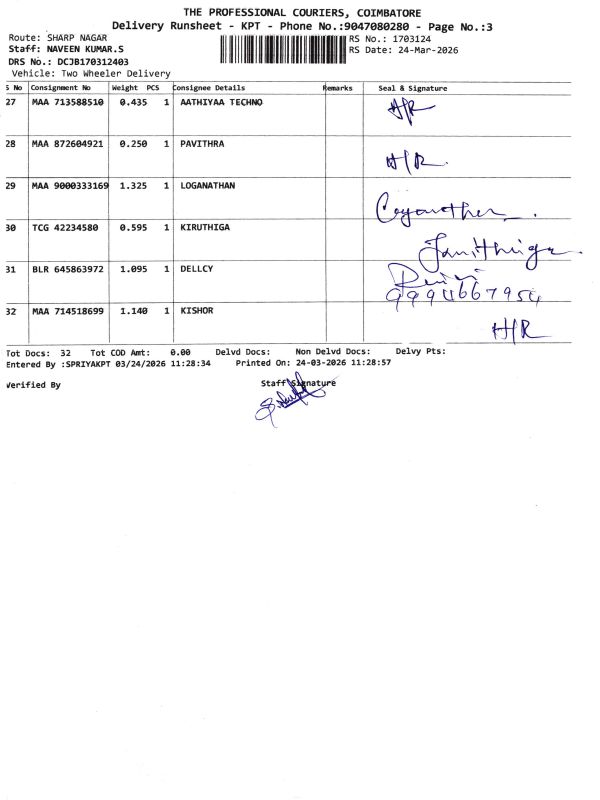 THE PROFESSIONAL COURIERS, COIMBATORE
Delivery Runsheet - KPT - Phone No.:9047080280 - Page No.:3
Route: SHARP NAGAR
RS No.: 1703124
Staff: NAVEEN KUMAR.S
RS Date: 24-Mar-2026
DRS No.: DCJB170312403
Vehicle: Two Wheeler Delivery
S No Consignment No Weight PCS Consignee Details Remarks Seal & Signature
27 MAA 713588510 0.435 1 AATHIYAA TECHNO H/R
28 MAA 872604921 0.250 1 PAVITHRA H/R.
29 MAA 9000333169 1.325 1 LOGANATHAN
30 TCG 42234580 0.595 1 KIRUTHIGA
31 BLR 645863972 1.095 1 DELLCY
9994667954
32 MAA 714518699 1.140 1 KISHOR H/R
Tot Docs: 32 Tot COD Amt: 0.00 Delvd Docs: Non Delvd Docs: Delvy Pts:
Entered By :SPRIYAKPT 03/24/2026 11:28:34 Printed On: 24-03-2026 11:28:57
Verified By Staff Signature